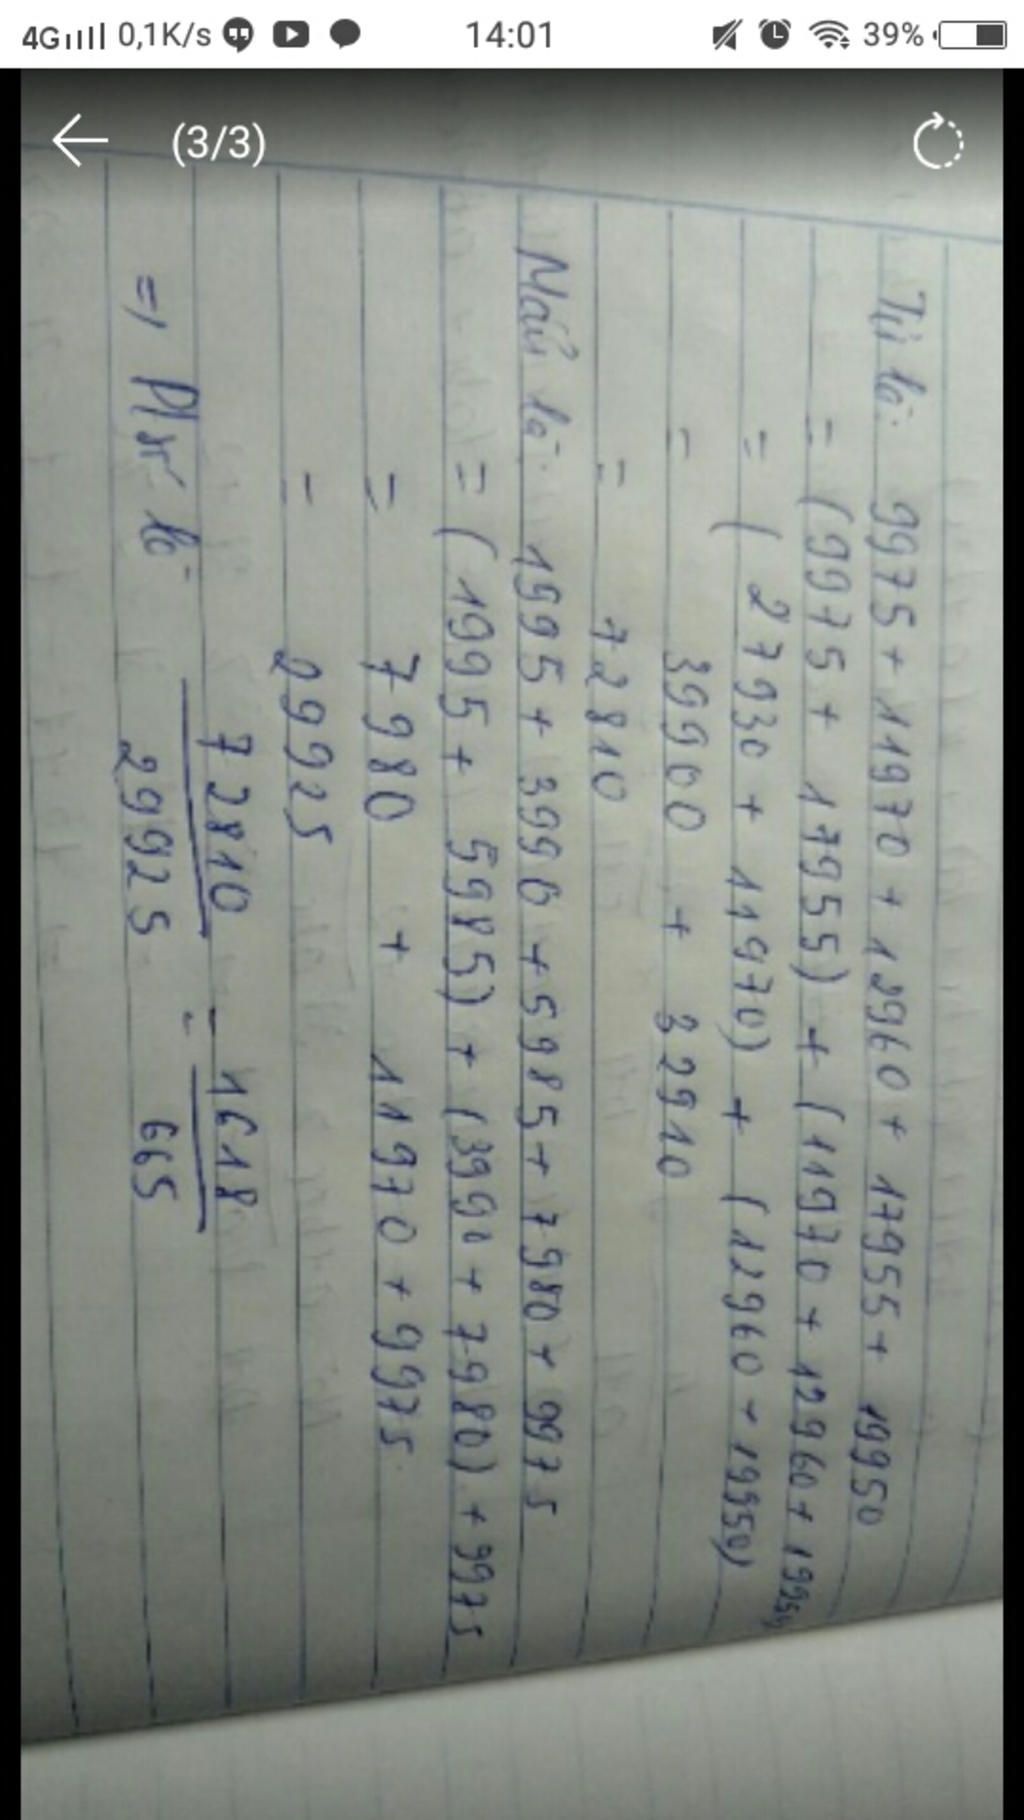 4G 0,1K/s 14:01 39%
(3/3)
Tử là: 9975 + 11970 + 12960 + 17955 + 19950
= (9975 + 17955) + (11970 + 12960 + 19950)
= ( 27930 + 11970) + (12960 + 19950)
= 39900 + 32910
= 72810
Mẫu là: 1995 + 3990 + 5985 + 7980 + 9975
= ( 1995 + 5985) + (3990 + 7980) + 9975
= 7980 + 11970 + 9975
= 29925
=> P/số là 72810/29925 = 1618/665